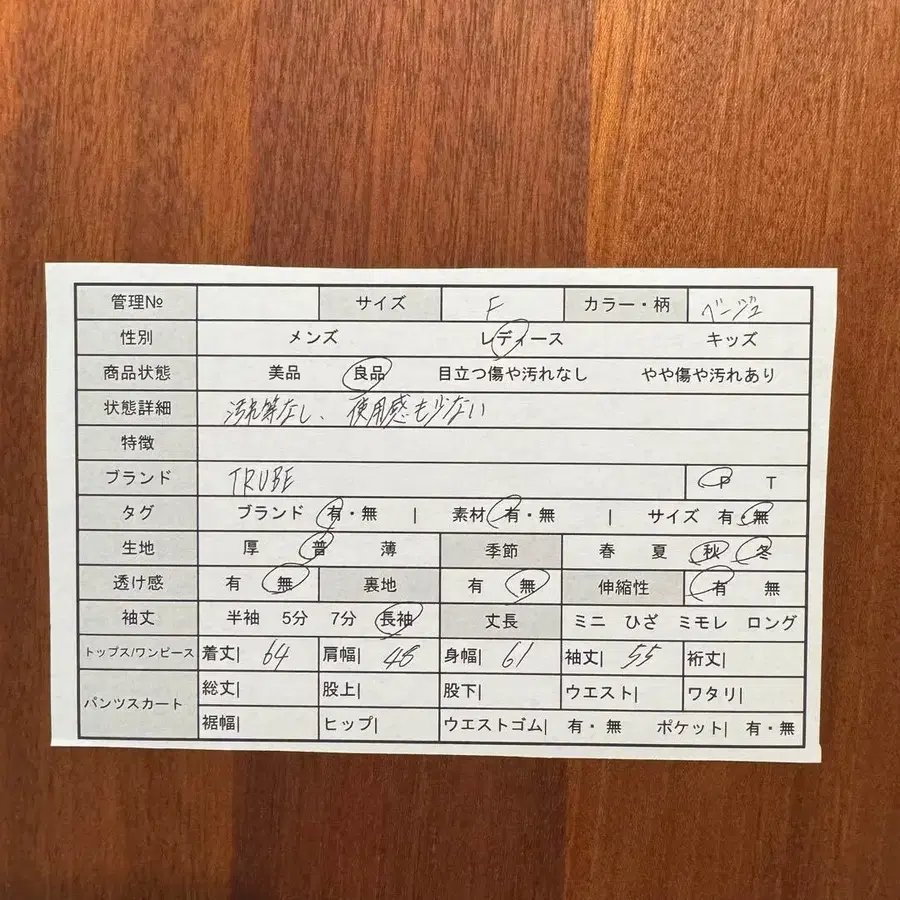 管理№ サイズ F カラー・柄 ベージュ
性別 メンズ レディース キッズ
商品状態 美品 良品 目立つ傷や汚れなし やや傷や汚れあり
状態詳細 汚れ等なし、使用感も少ない
特徴
ブランド TRUBE P T
タグ ブランド 有・無 | 素材 有・無 | サイズ 有・無
生地 厚 普 薄 季節 春 夏 秋 冬
透け感 有 無 裏地 有 無 伸縮性 有 無
袖丈 半袖 5分 7分 長袖 丈長 ミニ ひざ ミモレ ロング
トップス/ワンピース 着丈| 64 肩幅| 48 身幅| 61 袖丈| 55 裄丈|
パンツスカート 総丈| 股上| 股下| ウエスト| ワタリ|
裾幅| ヒップ| ウエストゴム| 有・無 ポケット| 有・無